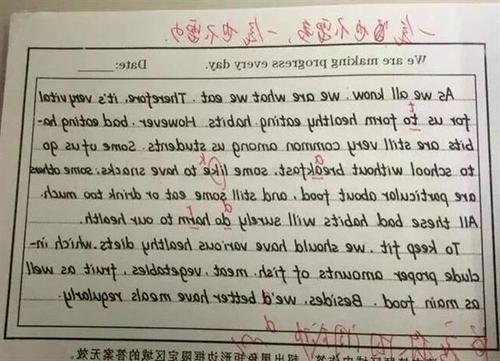 We are making progress every day. Date:
As we all know, we are what we eat. Therefore, it's very vital
for us to form healthy eating habits. However, bad eating ha-
bits are still very common among us students. Some of us go
to school without breakfast, some like to have snacks, some others
are particular about food, and still some eat or drink too much.
All these bad habits will surely do harm to our health.
To keep fit, we should have various healthy diets, which in-
clude proper amounts of fish, meat, vegetables, fruit as well
as main food. Besides, we'd better have meals regularly.
超出黑色矩形边框限定区域的答案无效